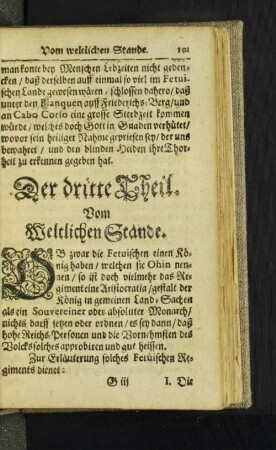 Vom weltlichen Stande. 101
man konte bey Menschen Lebzeiten nicht geden-
cken / daß derselben auff einmal so viel im Fetui-
schen Lande gewesen wären / schlossen dahero / daß
unter den Blanquen auff Friederichs-Berg / und
an Cabo Corso eine grosse Sterbzeit kommen
würde / welches doch Gott in Gnaden verhütet /
wovor sein heiliger Nahme gepriesen sey / der uns
bewahret / und den blinden Heiden ihre Thor-
heit zu erkennen gegeben hat.
Der dritte Theil.
Vom
Weltlichen Stande.
OB zwar die Fetuischen einen Kö-
nig haben / welchen sie Ohin nen-
nen / so ist doch vielmehr das Re-
giment eine Aristocratia / gestalt der
König in gemeinen Land-Sachen
als ein Souverciner oder absoluter Monarch /
nichts darff setzen oder ordnen / es sey dann / daß
hohe Reichs-Personen und die Vornehmsten des
Volcks solches approbiren und gut heissen.
Zur Erläuterung solches Fetuischen Re-
giments dienet:
G iij I. Die